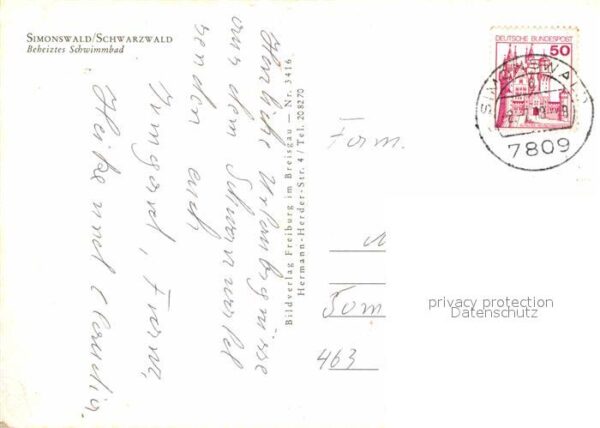 SIMONSWALD/SCHWARZWALD
Beheiztes Schwimmbad
Herzliche Urlaubsgrüsse
aus dem Schwarzwald
senden euch
Irmgard, Franz,
Heike und Claudia.
Bildverlag Freiburg im Breisgau — Nr. 3416
Hermann-Herder-Str. 4 / Tel. 20 82 70
DEUTSCHE BUNDESPOST
50
SIMONSWALD
7809
Fam.
463
privacy protection
Datenschutz